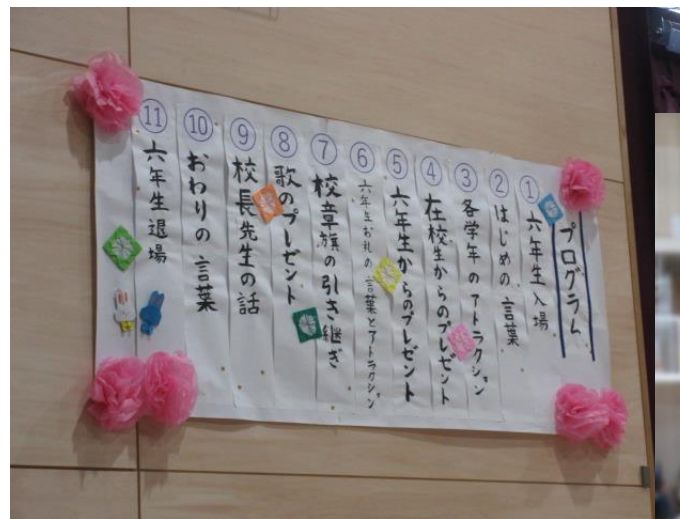 プログラム
① 六年生入場
② はじめの言葉
③ 各学年のアトラクション
④ 在校生からのプレゼント
⑤ 六年生からのプレゼント
⑥ 六年生お礼の言葉とアトラクション
⑦ 校章旗の引き継ぎ
⑧ 歌のプレゼント
⑨ 校長先生の話
⑩ おわりの言葉
⑪ 六年生退場